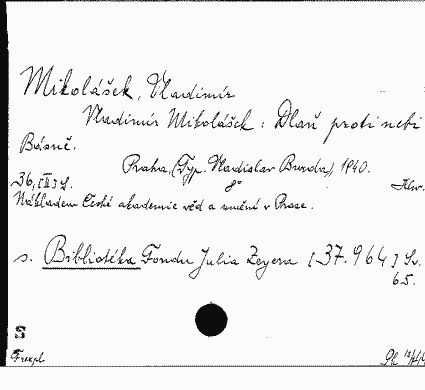 Mikolášek, Vladimír
Vladimír Mikolášek: Dlaň proti nebi
Básně.
Praha, (Typ. Vladislav Burda) 1940.
36, [II] S. 8°
Nákladem České akademie věd a umění v Praze.
s. Bibliotéka Fondu Julia Zeyera [37.964] Sv.
65.
S